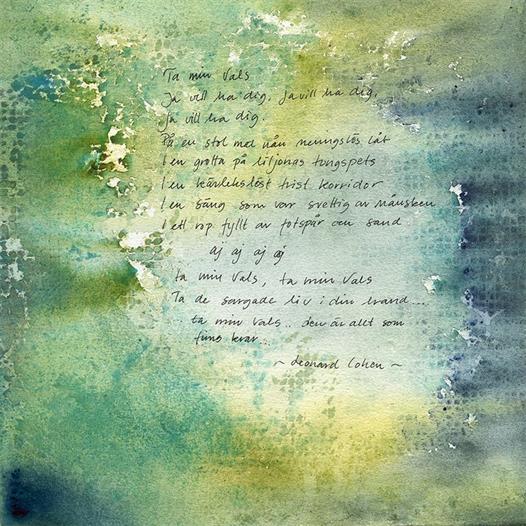 Ta min vals
Ja vill ha dig, ja vill ha dig,
ja vill ha dig.
På en stol med nån meningslös låt
I en grotta på liljonas tungspets
I en kärlekslöst trist korridor
I en säng som var svettig av månsken
I ett rop fyllt av fotspår och sand
aj aj aj aj
ta min vals, ta min vals
Ta de sargade liv i din hand...
ta min vals.. den är allt som
finns kvar...
~ Leonard Cohen ~